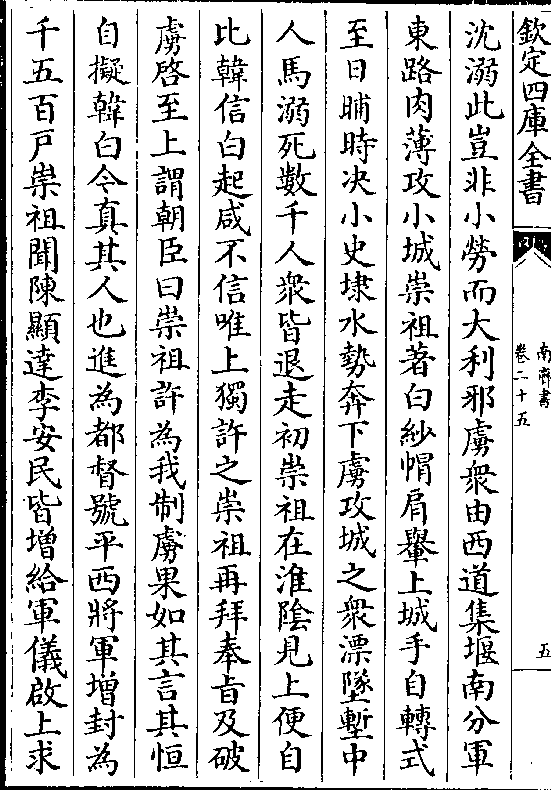 欽定四庫全書
南齊書
卷二十五
五
沈溺此豈非小勞而大利邪虜衆由西道集堰南分軍
東路肉薄攻小城崇祖著白紗帽肩轝上城手自轉式
至日晡時決小史埭水勢奔下虜攻城之衆漂墜塹中
人馬溺死數千人衆皆退走初崇祖在淮陰見上便自
比韓信白起咸不信唯上獨許之崇祖再拜奉旨及破
虜啓至上謂朝臣曰崇祖許為我制虜果如其言其恒
自擬韓白今真其人也進為都督號平西將軍增封為
千五百戶崇祖聞陳顯達李安民皆增給軍儀啟上求